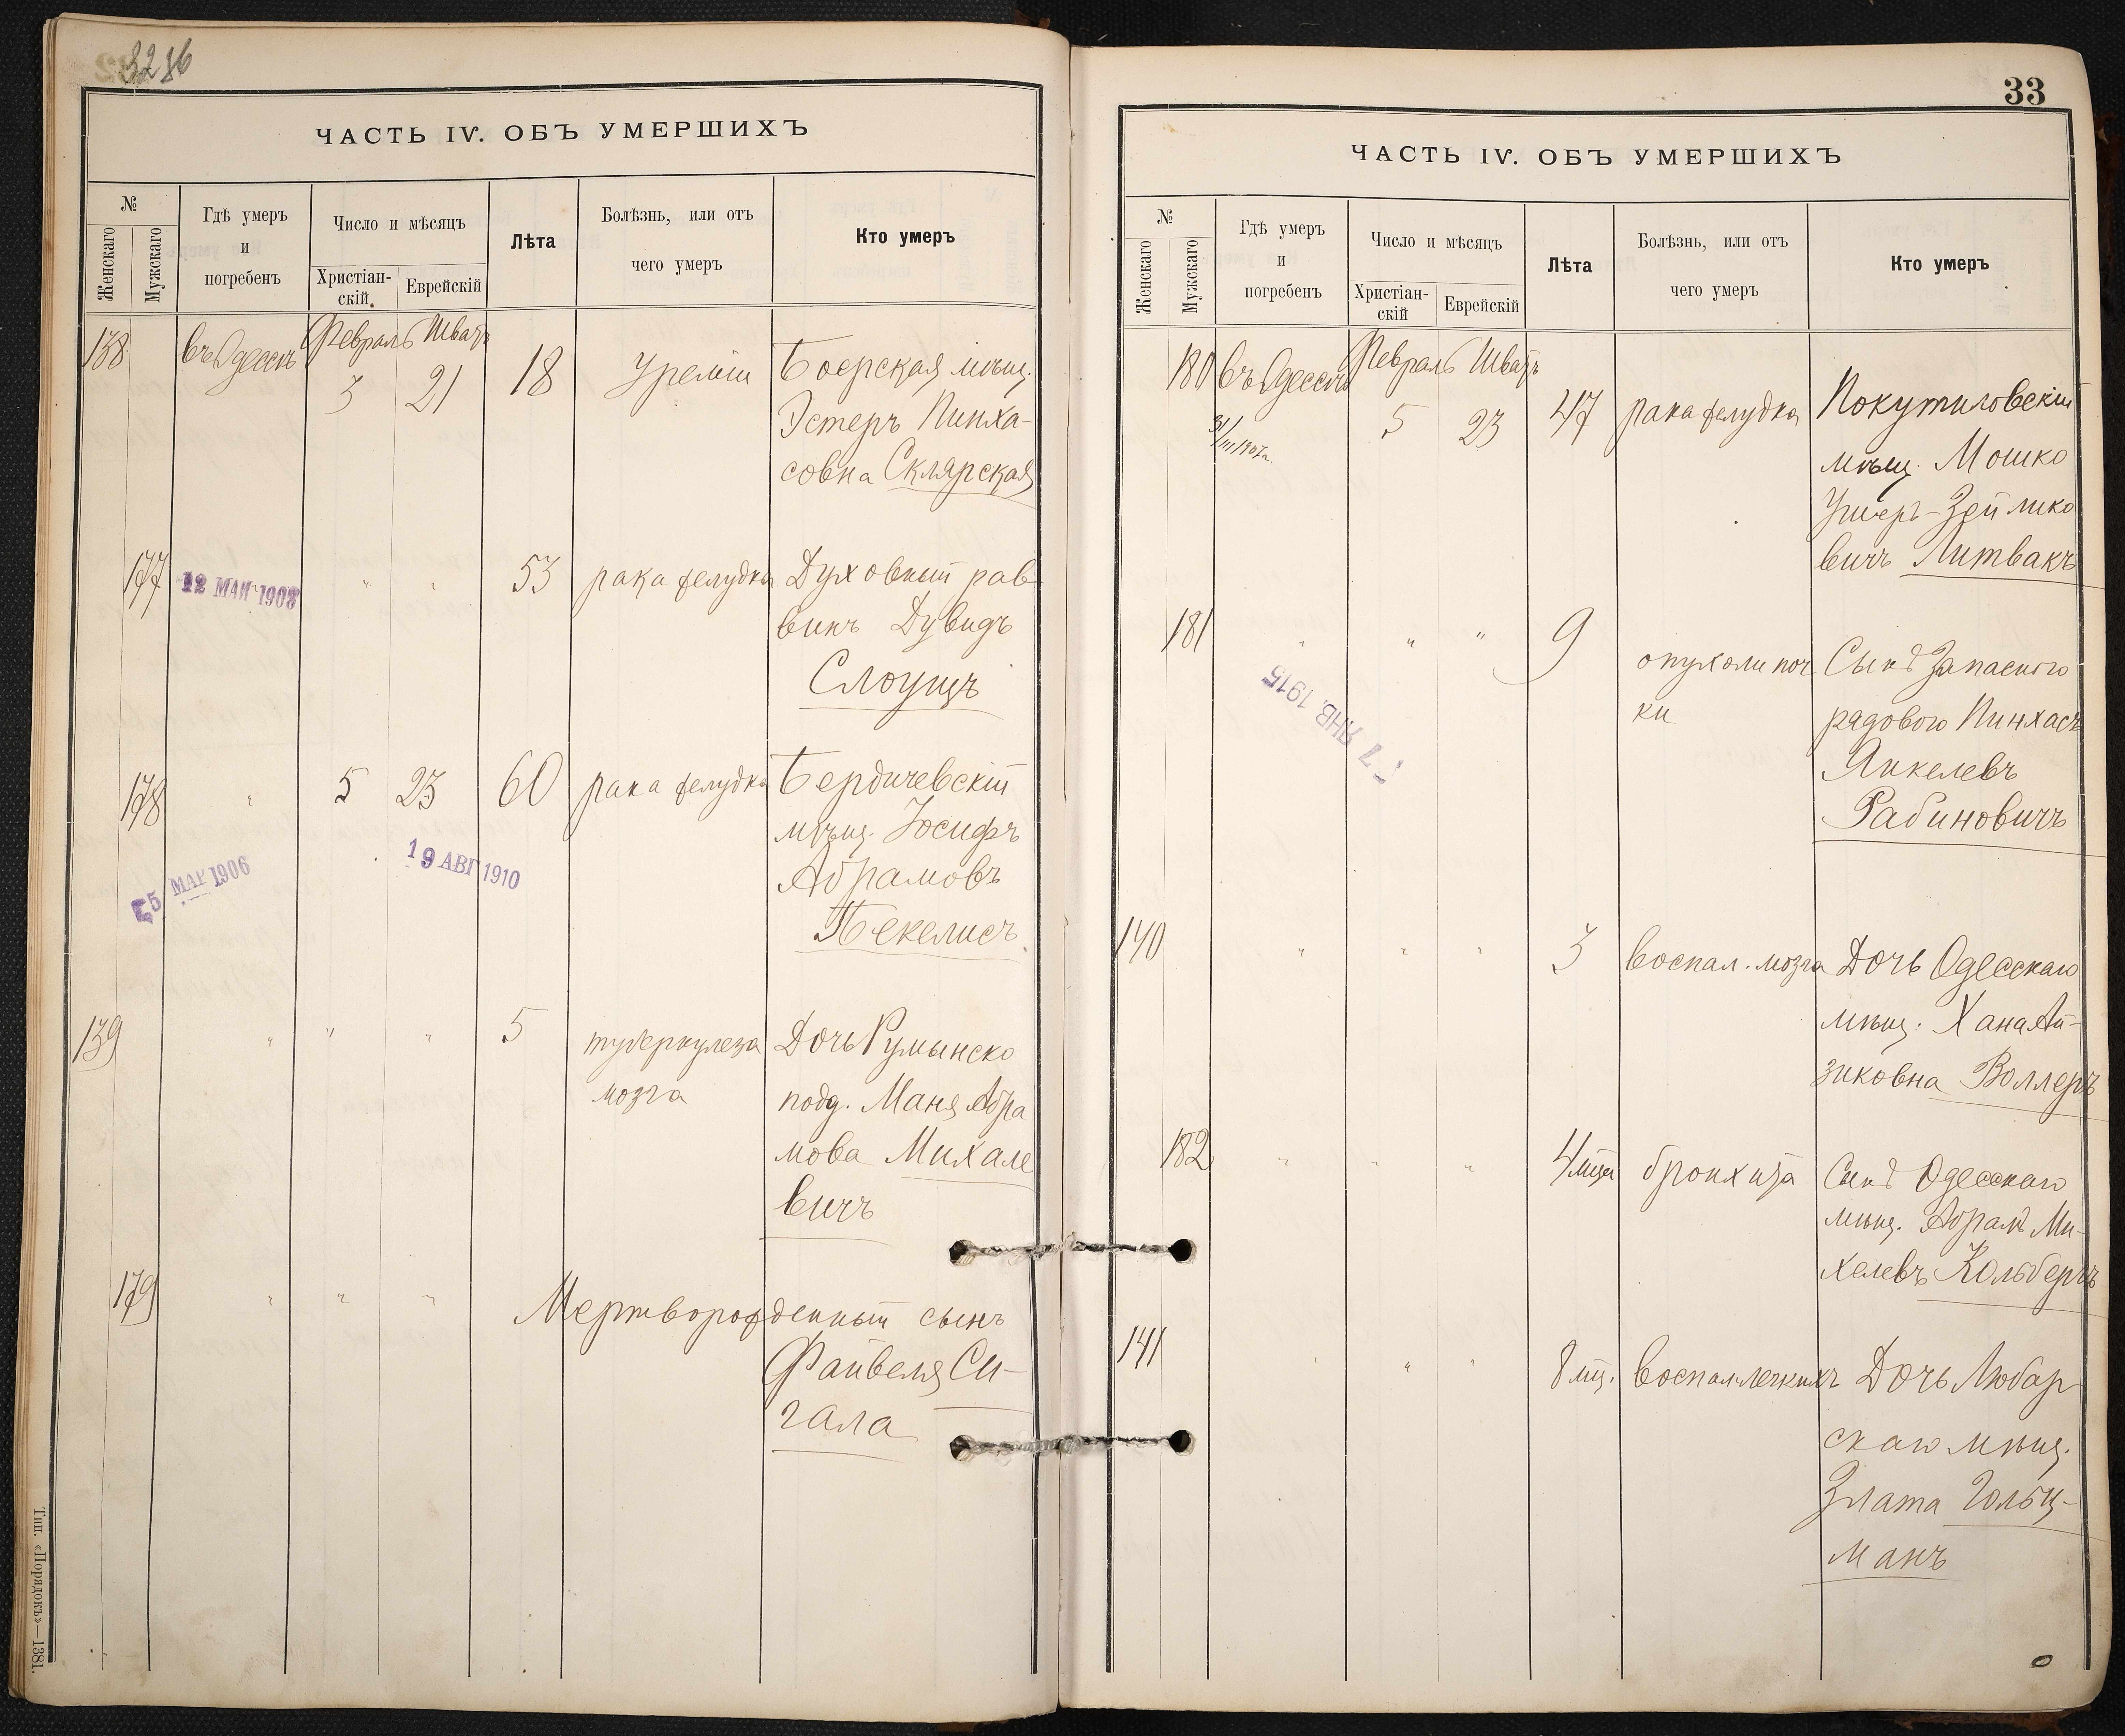 3286
ЧАСТЬ IV. ОБЪ УМЕРШИХЪ
№
Женскаго
Мужскаго
Гдѣ умеръ
и
погребенъ
Число и мѣсяцъ
Христіан-
скій.
Еврейскій
Лѣта
Болѣзнь, или отъ
чего умеръ
Кто умеръ
138 въ Одессѣ Февраль Шватъ
3 21 18 Уреміи Боерская мѣщ.
Эстеръ Пинха-
совна Склярская
177 12 МАЙ 1908 " " 53 рака желудка Духовный рав-
винъ Дувидъ
Слоущъ
178 " 5 23 60 рака желудка Бердичевскій
мѣщ. Іосифъ
Абрамовъ
Бекелисъ
МАР 1906
19 АВГ 1910
139 " " " 5 туберкулеза Дочь Румынско
мозга подд. Маня Абра
мова Михале
вичъ
179 " " " Мертворожденный сынъ
Файвеля Си-
гала
Тип. «Порядокъ»—1381.
33
ЧАСТЬ IV. ОБЪ УМЕРШИХЪ
№
Женскаго
Мужскаго
Гдѣ умеръ
и
погребенъ
Число и мѣсяцъ
Христіан-
скій
Еврейскій
Лѣта
Болѣзнь, или отъ
чего умеръ
Кто умеръ
180 въ Одессѣ Февраль Шватъ
5 23 47 рака желудка Покутиловскій
мѣщ. Мошко
Ушеръ-Зейлико
вичъ Литвакъ
181 " " " 9 опухоли поч Сынъ Запасного
ки рядового Пинхасъ
Янкелевъ
Рабиновичъ
- 7 ЯНВ. 1915
140 " " " 3 воспал. мозга Дочь Одесскаго
мѣщ. Хана Ай-
зиковна Воллеръ
182 " " " 4 мѣца бронхита Сынъ Одесскаго
мѣщ. Абрамъ Ми-
хелевъ Кольбергъ
141 " " " 8 мц. воспал. легкихъ Дочь Любар
скаго мѣщ.
Злата Гольц-
манъ